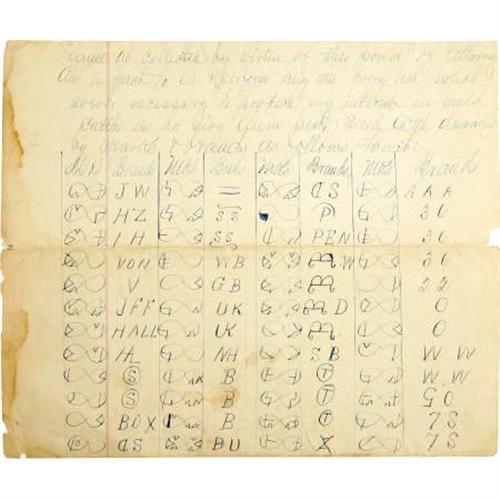 same as collected by virtue of this power of Attorney
As in fact to do & perform any and every act what
soever necessary to protect my interest in said
Cattle as he may deem best; Said Cattle
by marks & brands as follows to wit:
Mks Brands Mks Brds Mks Brands Mks Brands
JW = CS AAA
HZ SS P 36
IH SS PEN 36
VON WB W 36
V GB 22
JFF UK D O
HALL UK O
HL NH SB W W
S B T W W
S B T GO
BOX B T 7S
CS BU 7S